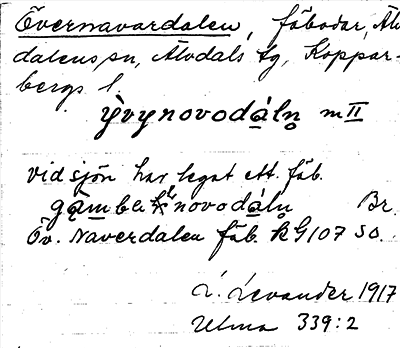 Övernavardalen, fäbodar, Älv
dalens sn, Älvdals tg, Koppar-
bergs l.
ỳvynovodálņ m II
vid sjön har legat ett fäb.
gamble novodálņ Br.
Öv. Naverdalen fäb. k G 107 SO.
L. Levander 1917
Ulma 339:2